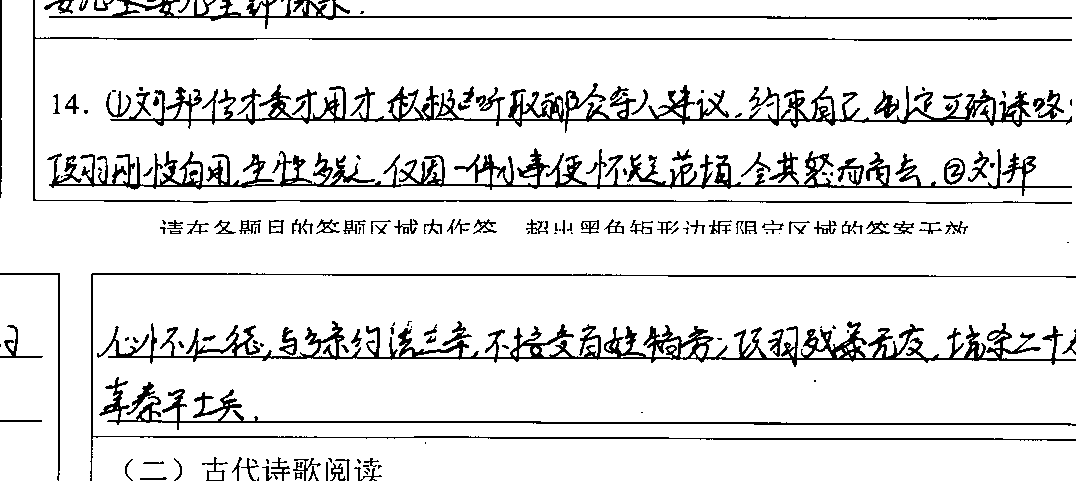 14. ①刘邦信才爱才用才,积极听取郦食其人建议,约束自己,制定正确谋略;
项羽刚愎自用,生性多疑,仅因一件小事便怀疑范增,令其怒而离去。②刘邦
请在各题目的答题区域内作答，超出黑色矩形边框限定区域的答案无效
心怀仁德,与乡亲约法三章,不接受百姓犒劳;项羽残暴无度,坑杀二十
秦军士兵。
（二）古代诗歌阅读